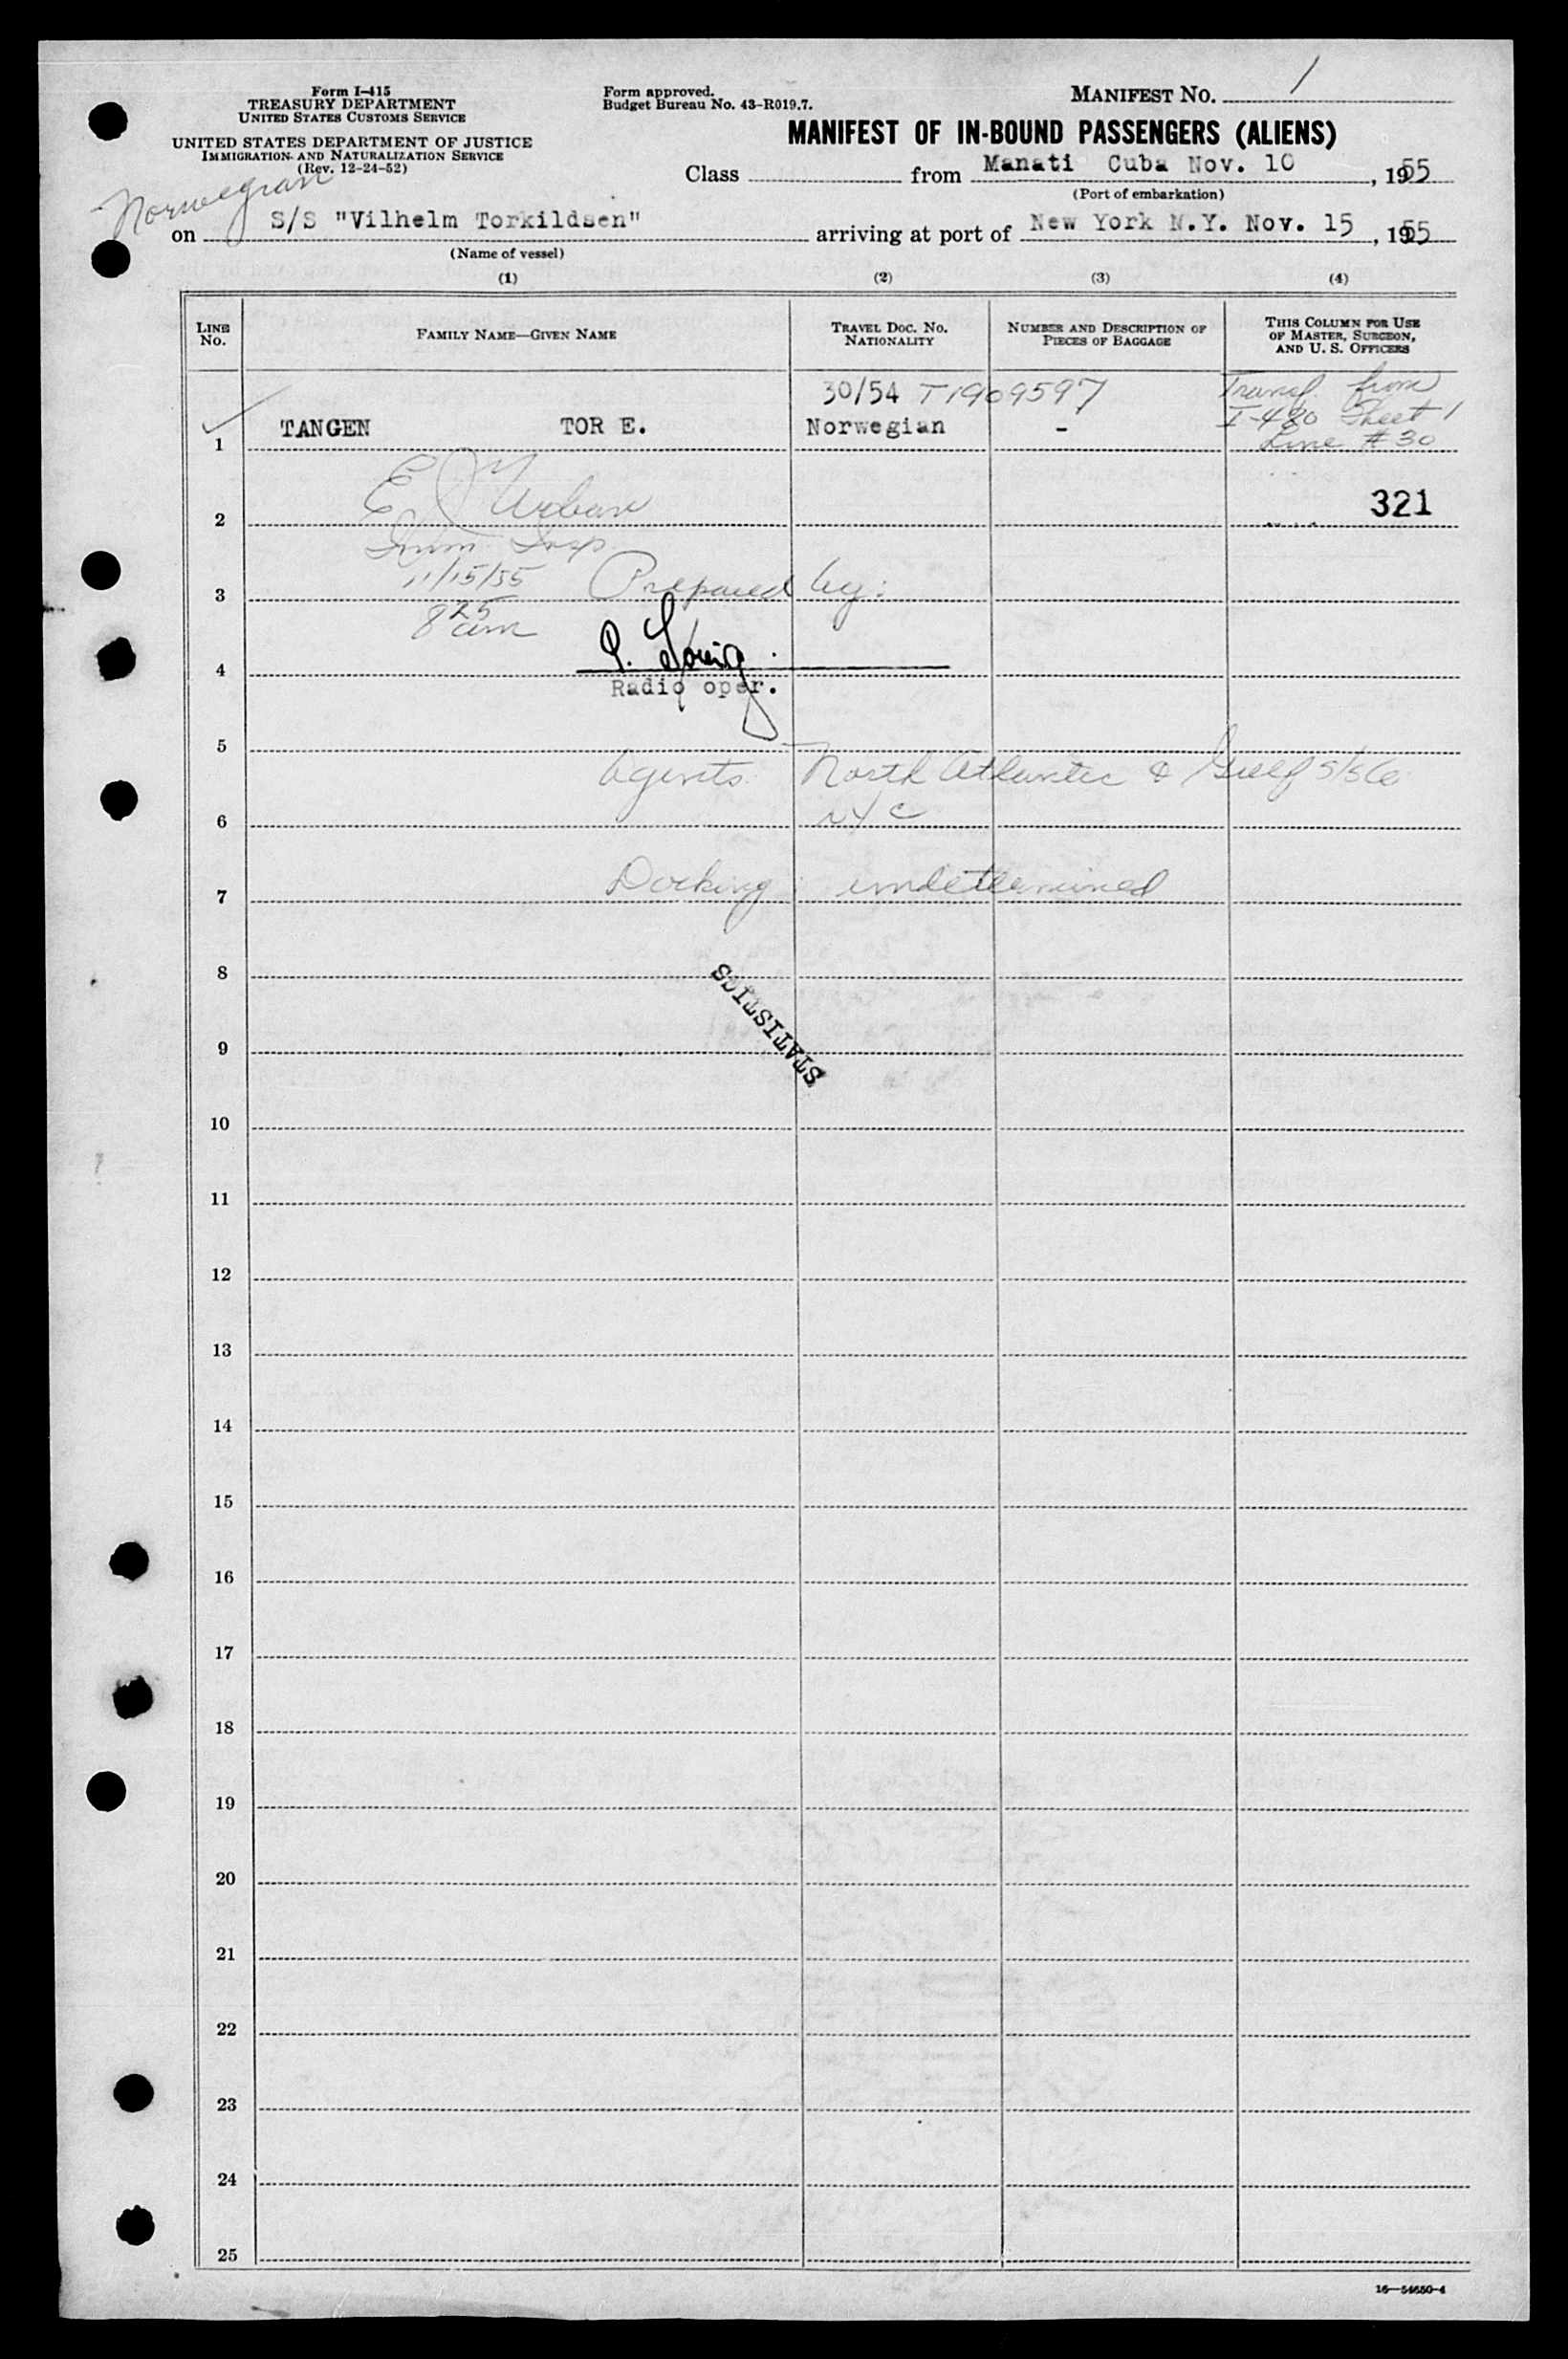 Form I-415
TREASURY DEPARTMENT
UNITED STATES CUSTOMS SERVICE
UNITED STATES DEPARTMENT OF JUSTICE
IMMIGRATION AND NATURALIZATION SERVICE
(Rev. 12-24-52)
Form approved.
Budget Bureau No. 43-R019.7.
MANIFEST NO. 1
MANIFEST OF IN-BOUND PASSENGERS (ALIENS)
Class from Manati Cuba Nov. 10, 1955
(Port of embarkation)
Norwegian
on S/S "Vilhelm Torkildsen" arriving at port of New York N.Y. Nov. 15, 1955
(Name of vessel)
(1) (2) (3) (4)
LINE NO.
FAMILY NAME—GIVEN NAME
TRAVEL DOC. NO. NATIONALITY
NUMBER AND DESCRIPTION OF PIECES OF BAGGAGE
THIS COLUMN FOR USE OF MASTER, SURGEON, AND U. S. OFFICERS
30/54 T1909597
Transf. from
I-480 Sheet 1
Line #30
1 TANGEN TOR E. Norwegian -
E J Urban
2 321
Imm. Insp.
11/15/55
3 Prepared by:
8 25 am
4
Radio oper.
5
Agents: North Atlantic & Gulf S/S Co
6 NYC
7 Docking: undetermined
8
STATISTICS
9
10
11
12
13
14
15
16
17
18
19
20
21
22
23
24
25
16—54650-4